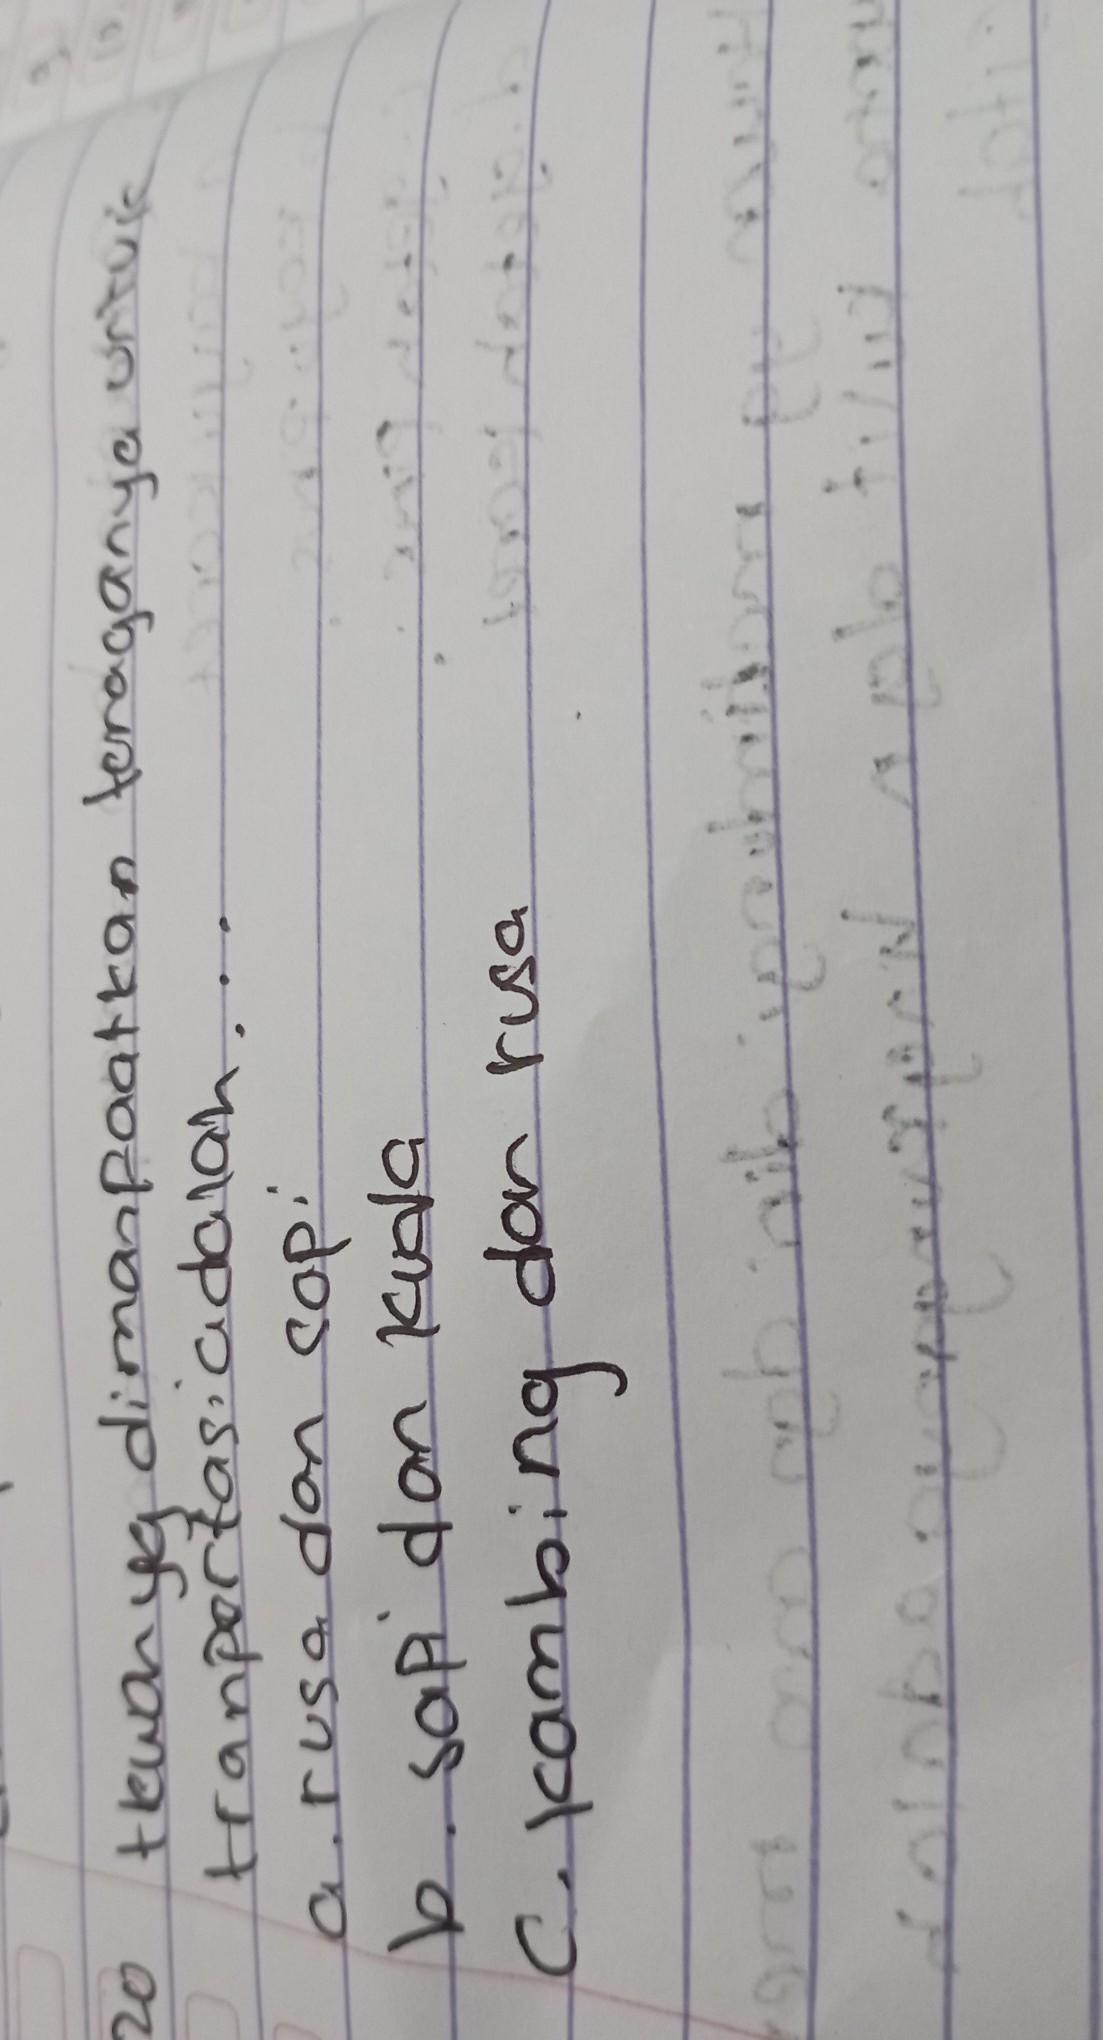 20 hewanyg dimanpaatkan tenaganya untuk
tranportasi adalah...
a. rusa dan sapi
b. sapi dan kuda
c. kambing dan rusa